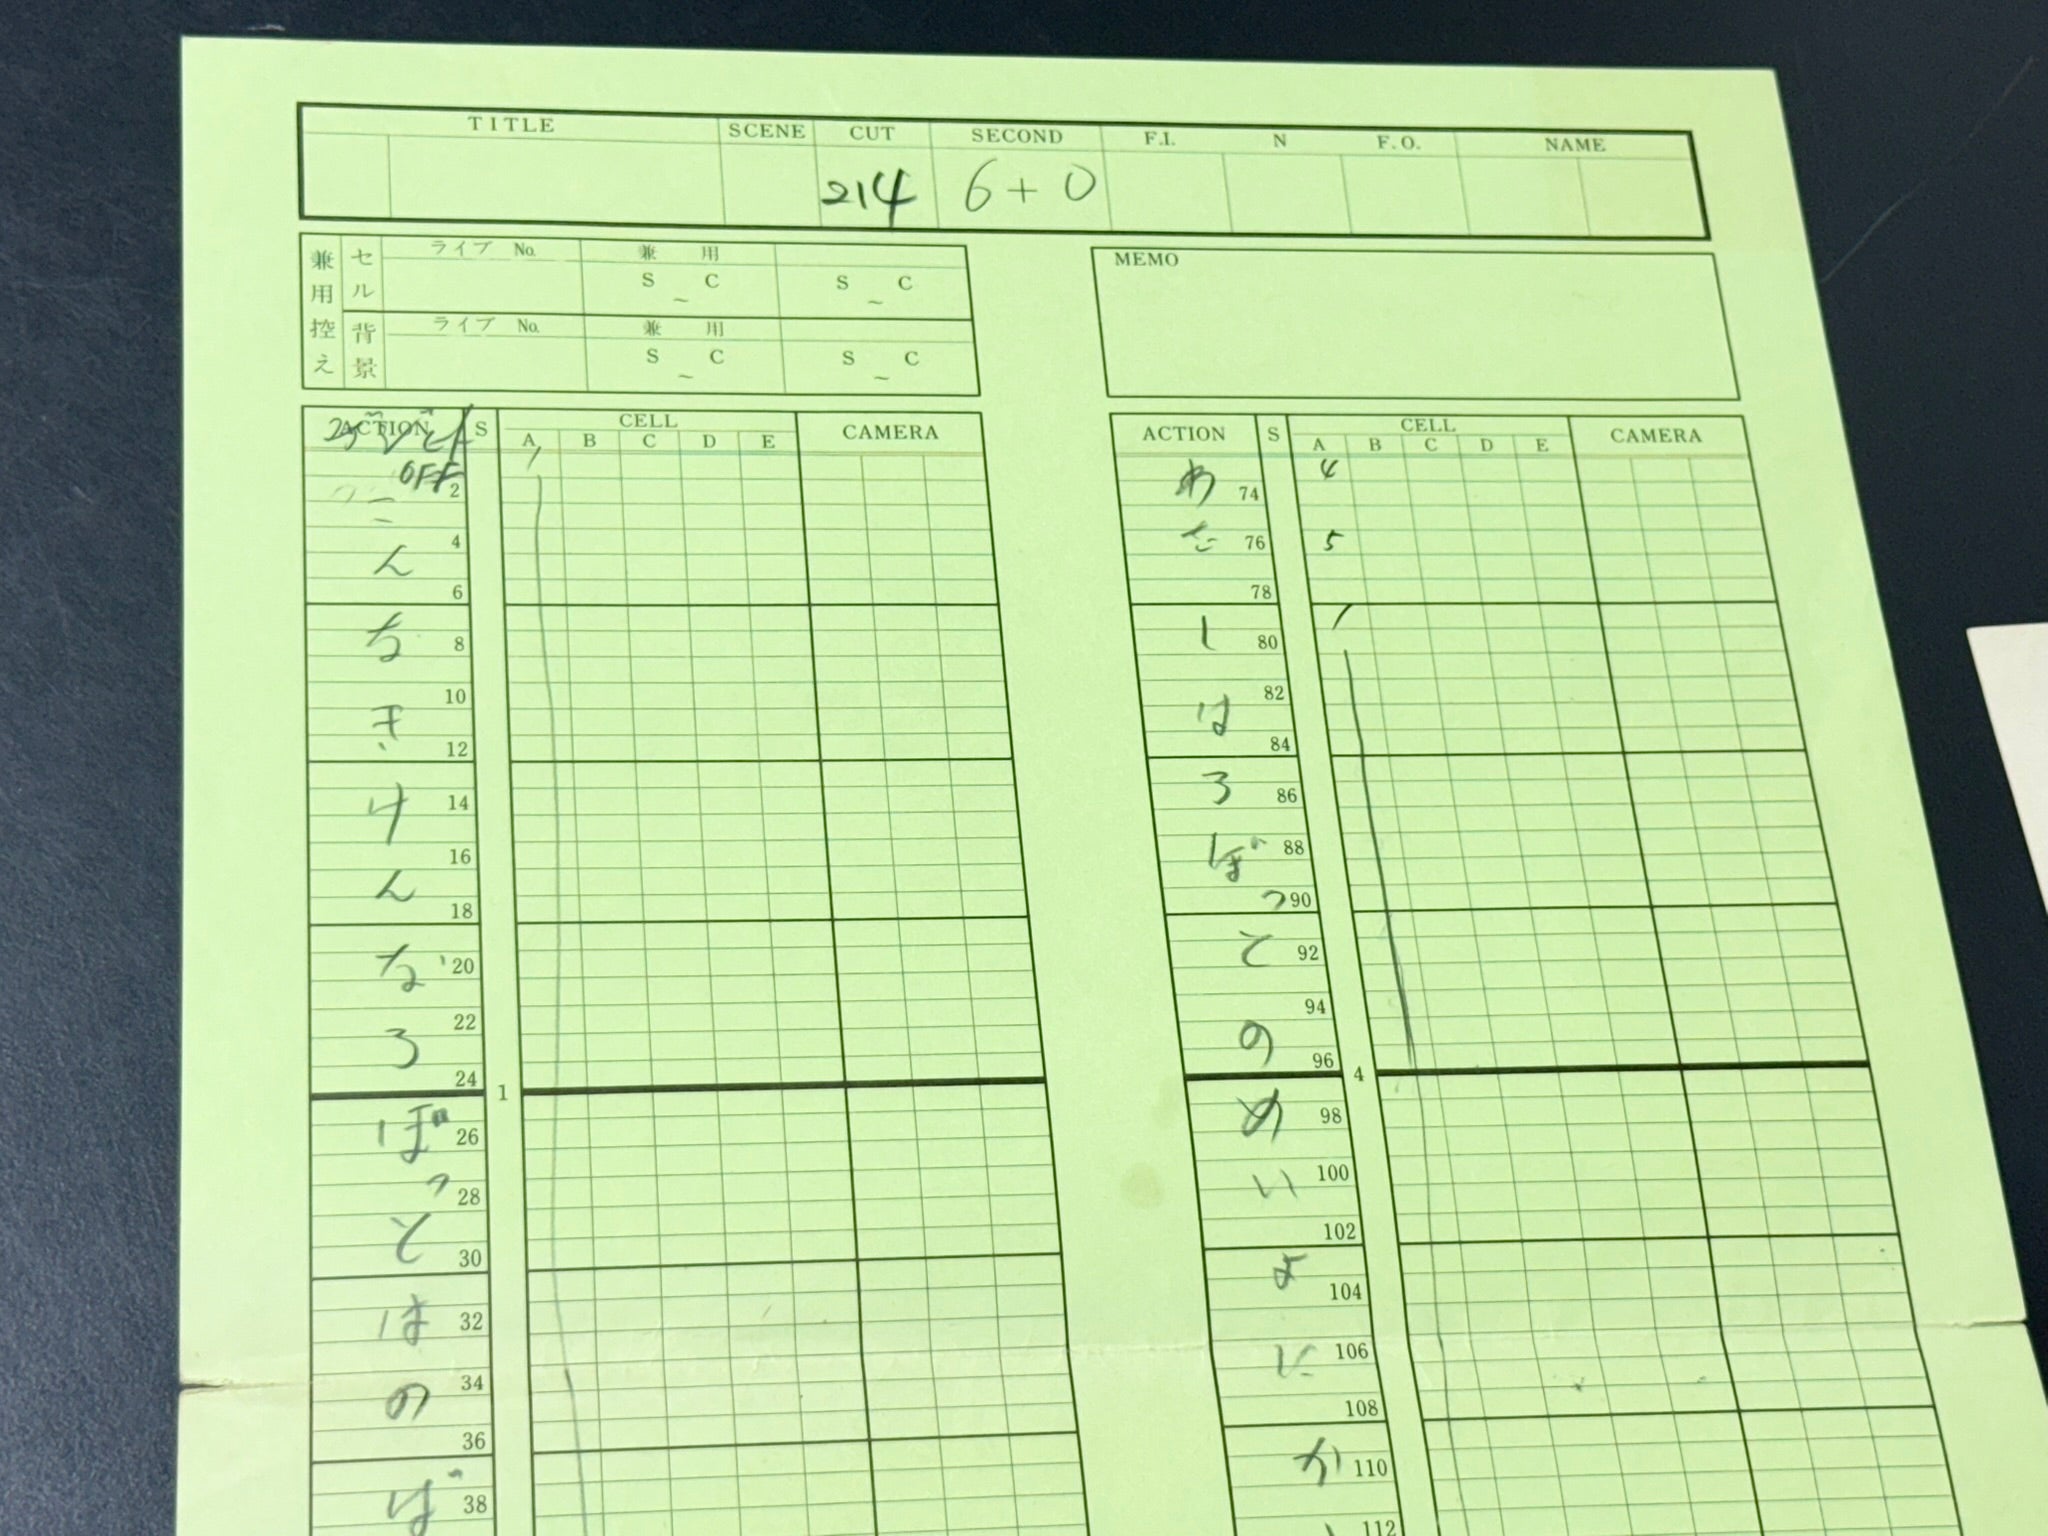 TITLE SCENE CUT SECOND F.I. N F.O. NAME
214 6+0
兼用控え
セル
ライブ No. 兼用
S C S C
~ ~
背景
ライブ No. 兼用
S C S C
~ ~
MEMO
ACTION S CELL CAMERA
A B C D E
1
OFF
2
こ
4
ん
6
ち
8
10
き
12
け
14
16
ん
18
な
20
22
ろ
24
1
ぼ
26
っ
28
と
30
は
32
の
34
36
ば
38
ACTION S CELL CAMERA
A B C D E
わ 4
74
た
76 5
78
し 1
80
82
は
84
ろ
86
ぼ
88
っ
90
と
92
94
の
96
4
め
98
い
100
102
よ
104
に
106
108
か
110
112